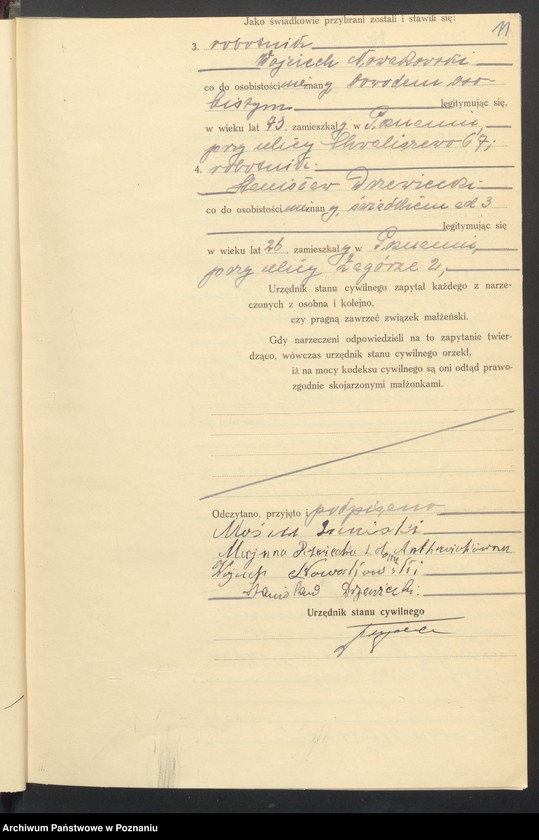 11
Jako świadkowie przybrani zostali i stawili się:
3. robotnik
Wojciech Nowakowski
co do osobistości znany dowodem oso-
bistym legitymując się,
w wieku lat 73, zamieszkały w Poznaniu,
przy ulicy Chwaliszewo 67;
4. robotnik
Stanisław Drzewiecki
co do osobistości znany, świadkiem ad 3
legitymując się
w wieku lat 26, zamieszkały w Poznaniu,
przy ulicy Zagórze 2,
Urzędnik stanu cywilnego zapytał każdego z narze-
czonych z osobna i kolejno,
czy pragną zawrzeć związek małżeński.
Gdy narzeczeni odpowiedzieli na to zapytanie twier-
dząco, wówczas urzędnik stanu cywilnego orzekł,
iż na mocy kodeksu cywilnego są oni odtąd prawo-
zgodnie skojarzonymi małżonkami.
Odczytano, przyjęto i podpisano
Stanisław Drzewiecki
Urzędnik stanu cywilnego
Archiwum Państwowe w Poznaniu